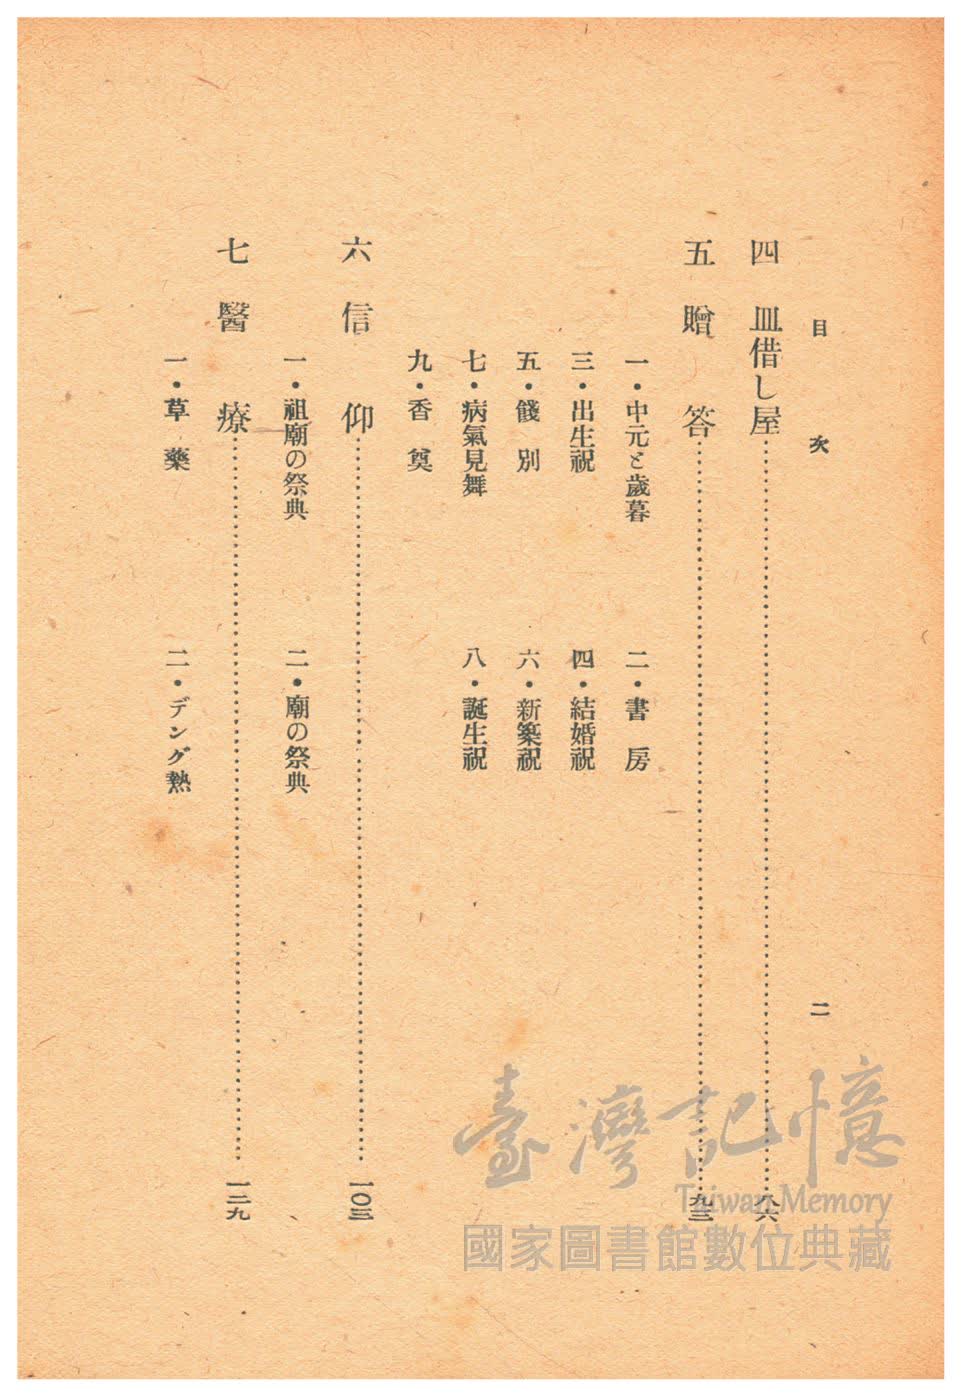 目次 二
四 皿借し屋……………………八六
五 贈答……………………九三
一・中元と歲暮 二・書房
三・出生祝 四・結婚祝
五・餞別 六・新築祝
七・病氣見舞 八・誕生祝
九・香奠
六 信仰……………………一〇三
一・祖廟の祭典 二・廟の祭典
七 醫療……………………一二九
一・草藥 二・デング熱
臺灣記憶
Taiwan Memory
國家圖書館數位典藏